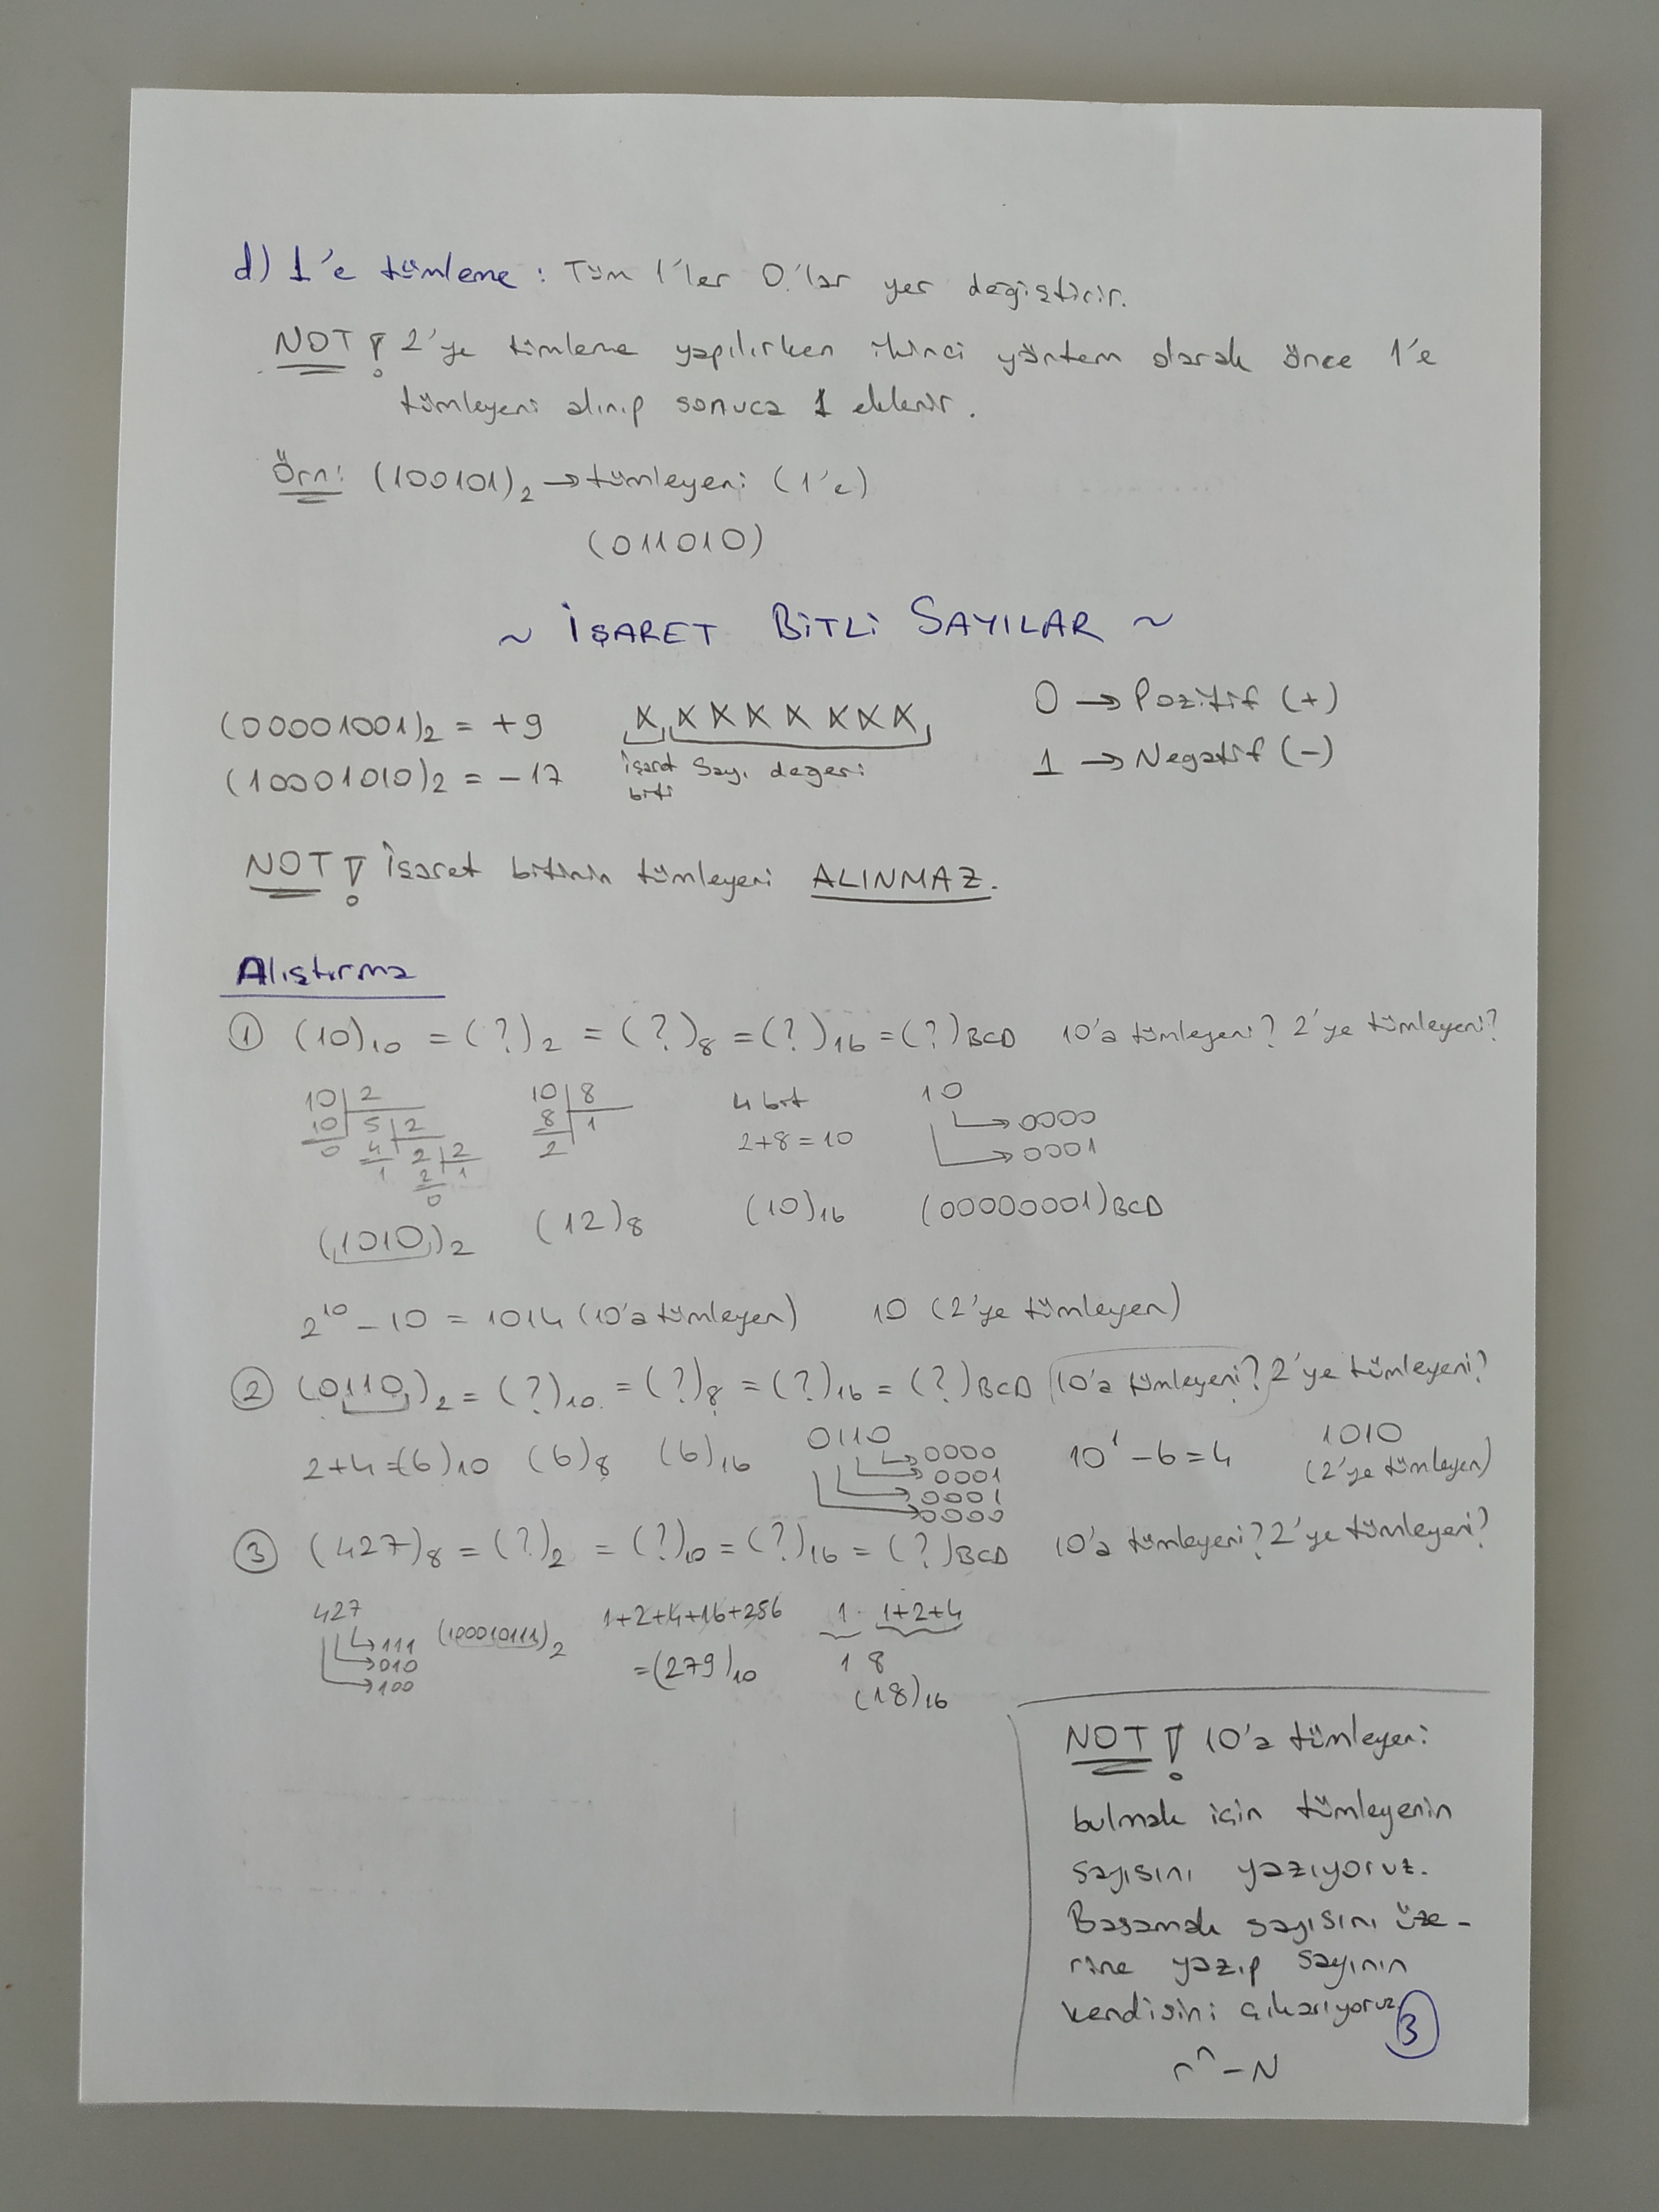 d) 1'e tümleme : Tüm 1'ler 0'lar yer değiştirir.
NOT! 2'ye tümleme yapılırken ikinci yöntem olarak önce 1'e
tümleyeni alınıp sonuca 1 eklenir.
Örn: (100101)2 → tümleyeni (1'e)
(011010)
~ İŞARET BİTLİ SAYILAR ~
(00001001)2 = +9 X X X X X X X X 0 → Pozitif (+)
(10001010)2 = -17 işaret biti Sayı değeri 1 → Negatif (-)
NOT! İşaret bitinin tümleyeni ALINMAZ.
Alıştırma
① (10)10 = (?)2 = (?)8 = (?)16 = (?)BCD 10'a tümleyeni? 2'ye tümleyeni?
10 | 2 10 | 8 4 bit 10
10 5 | 2 8 1 2+8=10 → 0000
0 4 2 | 2 2 → 0001
1 2 1
0
(1010)2 (12)8 (10)16 (00000001)BCD
2^10 - 10 = 1014 (10'a tümleyen) 10 (2'ye tümleyen)
② (0110)2 = (?)10 = (?)8 = (?)16 = (?)BCD 10'a tümleyeni? 2'ye tümleyeni?
2+4=(6)10 (6)8 (6)16 0110 10^1 - 6 = 4 1010
→ 0000 (2'ye tümleyen)
→ 0001
→ 0001
→ 0000
③ (427)8 = (?)2 = (?)10 = (?)16 = (?)BCD 10'a tümleyeni? 2'ye tümleyeni?
427 (100010111)2 1+2+4+16+256 1. 1+2+4
→ 111 =(279)10 1 8
→ 010 (18)16
→ 100
NOT! 10'a tümleyeni
bulmak için tümleyenin
sayısını yazıyoruz.
Basamak sayısını üze-
rine yazıp sayının
kendisini çıkarıyoruz
r^n - N
3